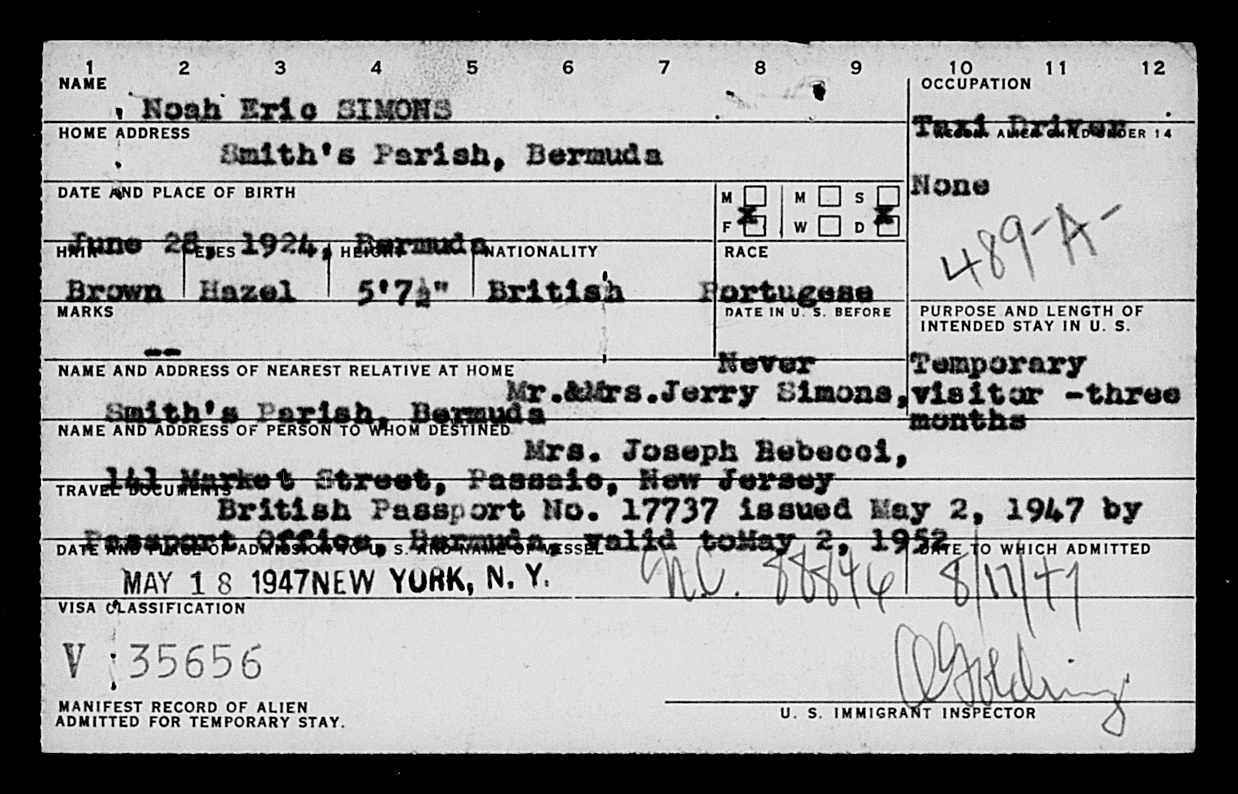 1 2 3 4 5 6 7 8 9 10 11 12
NAME
Noah Eric SIMONS
OCCUPATION
Taxi Driver
HOME ADDRESS
Smith's Parish, Bermuda
UNDER 14
None
DATE AND PLACE OF BIRTH
M M S
F W D
X X
June 28, 1924, Bermuda
489-A-
HAIR EYES HEIGHT NATIONALITY RACE
Brown Hazel 5'7½" British Portugese
MARKS
--
DATE IN U. S. BEFORE
Never
PURPOSE AND LENGTH OF
INTENDED STAY IN U. S.
Temporary
visitor -three
months
NAME AND ADDRESS OF NEAREST RELATIVE AT HOME
Mr.&Mrs.Jerry Simons,
Smith's Parish, Bermuda
NAME AND ADDRESS OF PERSON TO WHOM DESTINED
Mrs. Joseph Rebecci,
141 Market Street, Passaic, New Jersey
TRAVEL DOCUMENTS
British Passport No. 17737 issued May 2, 1947 by
Passport Office, Hermuda, valid toMay 2, 1952
DATE AND PLACE OF ADMISSION TO U. S. AND NAME OF VESSEL
DATE TO WHICH ADMITTED
MAY 18 1947 NEW YORK, N. Y.
N.C. 88846
8/17/47
VISA CLASSIFICATION
V 35656
MANIFEST RECORD OF ALIEN
ADMITTED FOR TEMPORARY STAY.
U. S. IMMIGRANT INSPECTOR